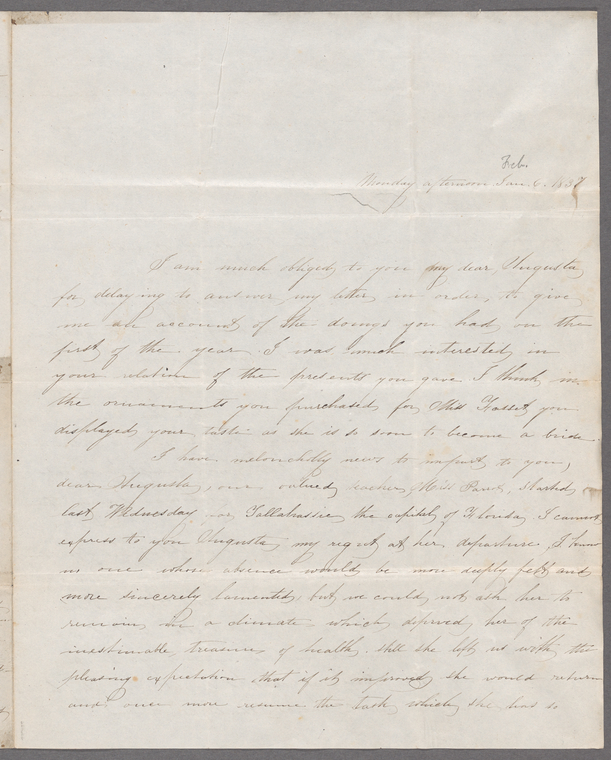 Feb.
Monday afternoon Jan. 6 1837
I am much obliged to you my dear Augusta
for delaying to answer my letter, in order, to give
me an account of the doings you had on the
first of the year. I was much interested in
your relation of the presents you gave I think in
the ornaments you purchased for Miss Hasset you
displayed your taste as she is so soon to become a bride.
I have melancholy news to impart to you,
dear Augusta, our valued teacher, Miss started
last Wednesday for Tallahassie the capital of Florida. I cannot
express to you Augusta my regret at her departure, I know
no one whose absence would be more deeply felt and
more sincerely lamented, but we could not ask her to
remain in a climate which deprived her of the
inestimable treasure of health. still she left us with the
pleasing expectation that if it improved she would return
and once more resume the task which she has so